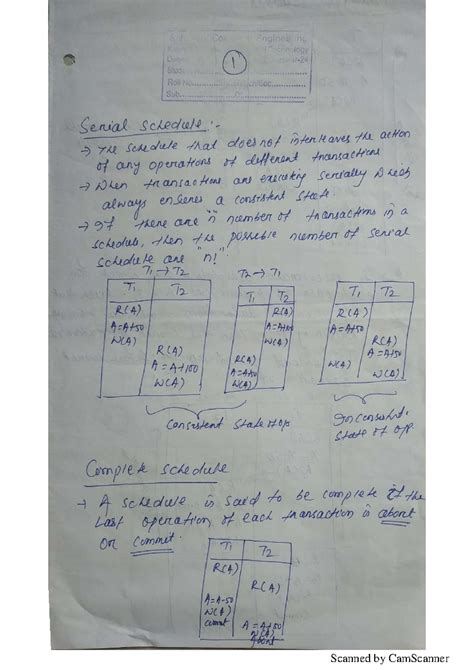 Engineering
Technology
Roll No.
Sub.
1
Serial Schedule :-
→ The schedule that does not interleaves the action
of any operations of different transactions
→ When transactions are executing serially which
always ensures a consistent state.
→ If there are "n" number of transactions in a
schedule, then the possible number of serial
schedule are "n!"
T1 → T2
T2 → T1
T1 T2
T1 T2
T1 T2
R(A)
A=A+50
W(A)
R(A)
A=A+100
W(A)
R(A)
A=A+100
W(A)
R(A)
W(A)
R(A)
A=A+50
R(A)
A=A+50
W(A)
W(A)
Consistent State of
Inconsistent
State of
Complete Schedule
→ A schedule is said to be complete if the
Last operation of each transaction is abort
or commit.
T1 T2
R(A)
R(A)
A=A-50
W(A)
commit
A=A+50
W(A)
Abort
Scanned by CamScanner